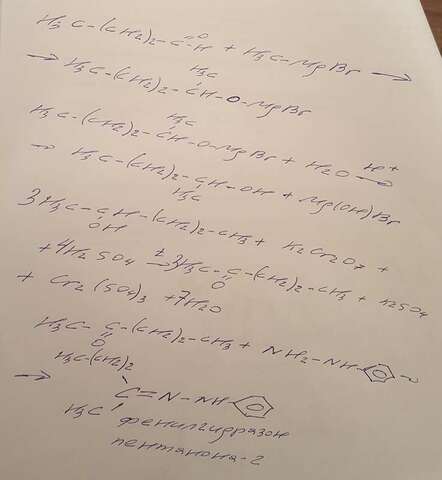 H3C-(CH2)2-C=O-H + H3C-MgBr →
→ H3C-(CH2)2-CH-O-MgBr
H3C
H3C-(CH2)2-CH-O-MgBr + H2O H+ →
H3C
→ H3C-(CH2)2-CH-OH + Mg(OH)Br
H3C
3H3C-CH-(CH2)2-CH3 + K2Cr2O7 +
OH
+ 4H2SO4 t→ 3H3C-C-(CH2)2-CH3 + K2SO4
O
+ Cr2(SO4)3 + 7H2O
H3C-C-(CH2)2-CH3 + NH2-NH-
O
H3C-(CH2)2
→ C=N-NH-
H3C
фенилгидразон
пентанона-2